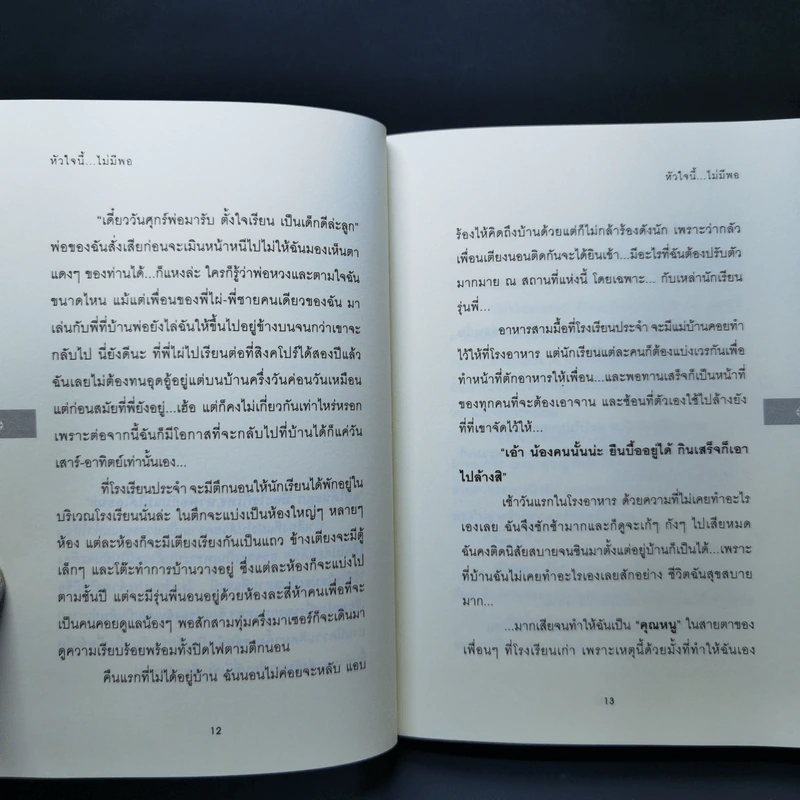 หัวใจนี้...ไม่มีพอ
"เดี๋ยววันศุกร์พ่อมารับ ตั้งใจเรียน เป็นเด็กดีล่ะลูก"
พ่อของฉันสั่งเสียก่อนจะเมินหน้าหนีไปไม่ให้ฉันมองเห็นตา
แดงๆ ของท่านได้...ก็แหงล่ะ ใครก็รู้ว่าพ่อหวงและตามใจฉัน
ขนาดไหน แม้แต่เพื่อนของพี่ไผ่-พี่ชายคนเดียวของฉัน มา
เล่นกับพี่ที่บ้านพ่อยังไล่ฉันให้ขึ้นไปอยู่ข้างบนจนกว่าเขาจะ
กลับไป นี่ยังดีนะ ที่พี่ไผ่ไปเรียนต่อที่สิงคโปร์ได้สองปีแล้ว
ฉันเลยไม่ต้องทนอุดอู้อยู่แต่บนบ้านครึ่งวันค่อนวันเหมือน
แต่ก่อนสมัยที่พี่ยังอยู่...เฮ้อ แต่ก็คงไม่เกี่ยวกันเท่าไหร่หรอก
เพราะต่อจากนี้ฉันก็มีโอกาสที่จะกลับไปที่บ้านได้ก็แค่วัน
เสาร์-อาทิตย์เท่านั้นเอง...
ที่โรงเรียนประจำ จะมีตึกนอนให้นักเรียนได้พักอยู่ใน
บริเวณโรงเรียนนั่นล่ะ ในตึกจะแบ่งเป็นห้องใหญ่ๆ หลายๆ
ห้อง แต่ละห้องก็จะมีเตียงเรียงกันเป็นแถว ข้างเตียงจะมีตู้
เล็กๆ และโต๊ะทำการบ้านวางอยู่ ซึ่งแต่ละห้องก็จะแบ่งไป
ตามชั้นปี แต่จะมีรุ่นพี่นอนอยู่ด้วยห้องละสี่ห้าคนเพื่อที่จะ
เป็นคนคอยดูแลน้องๆ พอสักสามทุ่มครึ่งมาเซอร์ก็จะเดินมา
ดูความเรียบร้อยพร้อมทั้งปิดไฟตามตึกนอน
คืนแรกที่ไม่ได้อยู่บ้าน ฉันนอนไม่ค่อยจะหลับ แอบ
12
หัวใจนี้...ไม่มีพอ
ร้องไห้คิดถึงบ้านด้วยแต่ก็ไม่กล้าร้องดังนัก เพราะว่ากลัว
เพื่อนเตียงนอนติดกันจะได้ยินเข้า...มีอะไรที่ฉันต้องปรับตัว
มากมาย ณ สถานที่แห่งนี้ โดยเฉพาะ... กับเหล่านักเรียน
รุ่นพี่...
อาหารสามมื้อที่โรงเรียนประจำ จะมีแม่บ้านคอยทำ
ไว้ให้ที่โรงอาหาร แต่นักเรียนแต่ละคนก็ต้องแบ่งเวรกันเพื่อ
ทำหน้าที่ตักอาหารให้เพื่อน...และพอทานเสร็จก็เป็นหน้าที่
ของทุกคนที่จะต้องเอาจาน และช้อนที่ตัวเองใช้ไปล้างยัง
ที่ที่เขาจัดไว้ให้...
"เอ้า น้องคนนั้นน่ะ ยืนบื้ออยู่ได้ กินเสร็จก็เอา
ไปล้างสิ"
เช้าวันแรกในโรงอาหาร ด้วยความที่ไม่เคยทำอะไร
เองเลย ฉันจึงชักช้ามากและก็ดูจะเก้ๆ กังๆ ไปเสียหมด
ฉันคงติดนิสัยสบายจนชินมาตั้งแต่อยู่บ้านก็เป็นได้...เพราะ
ที่บ้านฉันไม่เคยทำอะไรเองเลยสักอย่าง ชีวิตฉันสุขสบาย
มาก...
...มากเสียจนทำให้ฉันเป็น "คุณหนู" ในสายตาของ
เพื่อนๆ ที่โรงเรียนเก่า เพราะเหตุนี้ด้วยมั้งที่ทำให้ฉันเอง
13